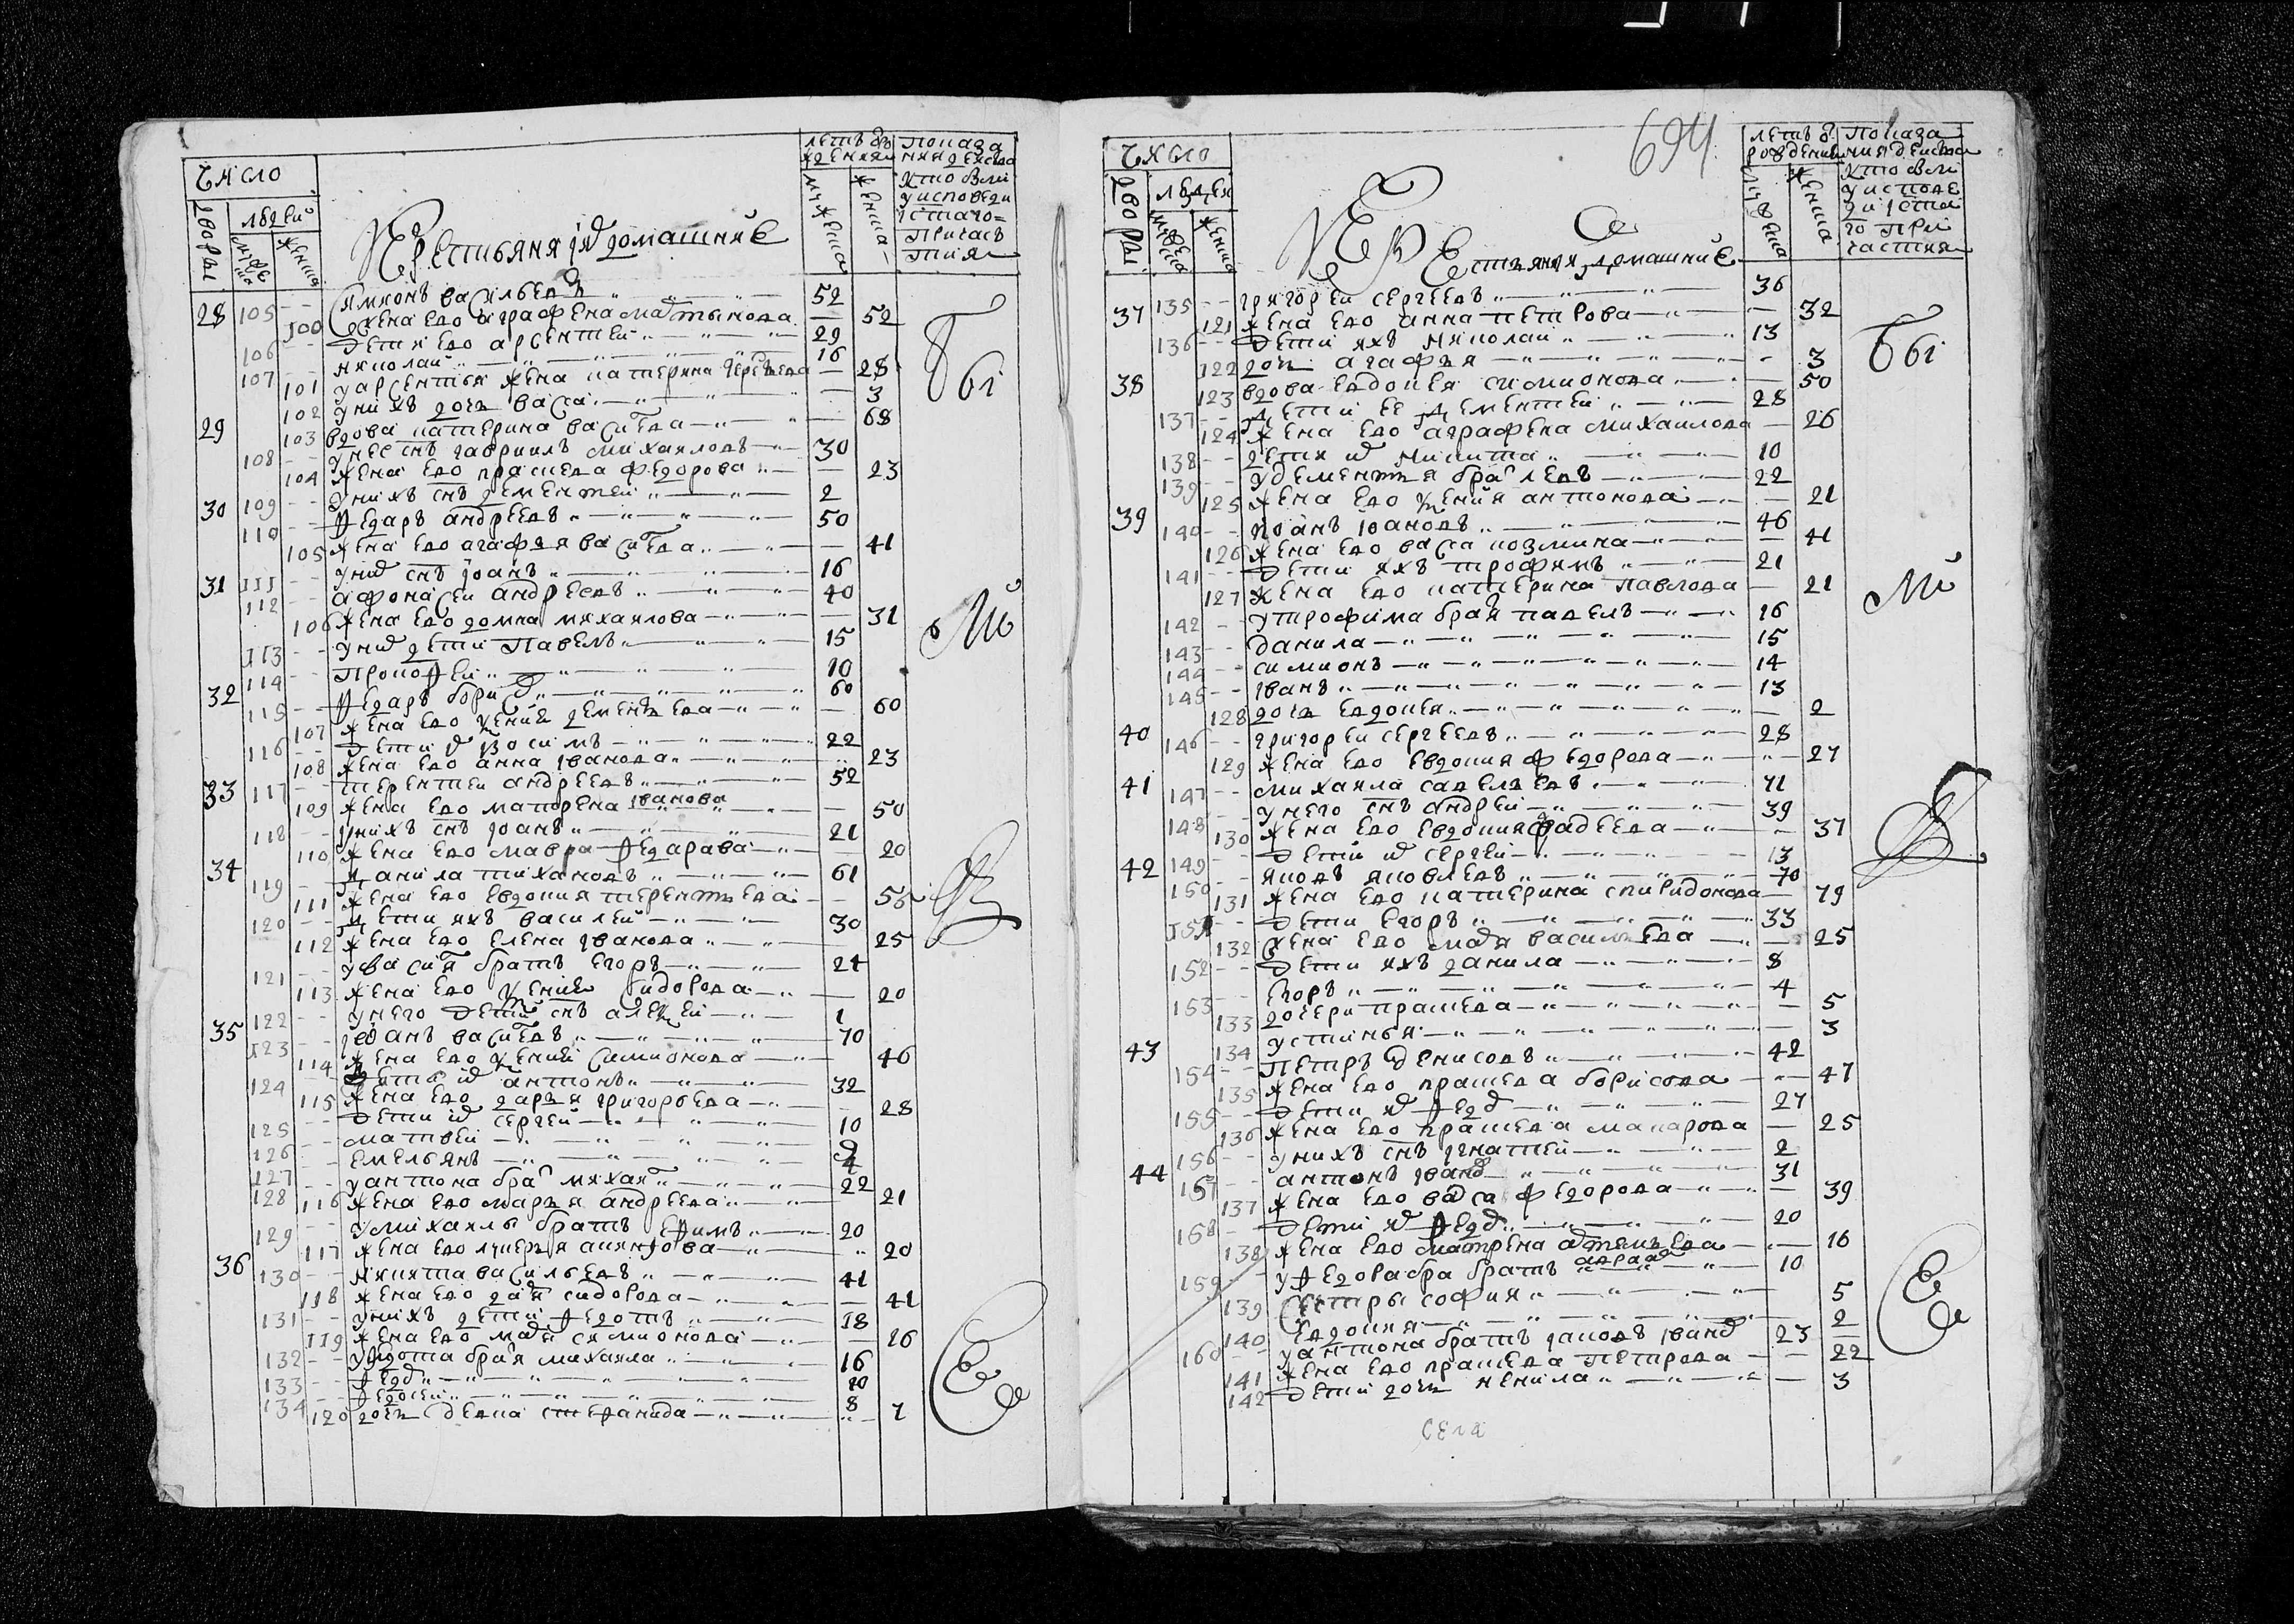 число
дворы
людей
мужеска
женска
Крестьяня и их домашние
летъ от рождения
мужеска
женска
Показания действа кто были у исповеди и стаго причастия
28 105 -- Симионъ Васильевъ 52
100 жена ево аграфена мартынова 52
106 -- Дети ево арсентей 29
107 -- николай 16
101 у арсентья жена катерина 28
102 у нихъ дочь васса 3
29 103 вдова катерина васильева 68
108 -- у нее снъ гаврилъ михаиловъ 30
104 жена ево прасковья федорова 23
109 -- у нихъ снъ дементей 2
30 110 -- Ѳедаръ андреевъ 50
105 жена ево агафья васильева 41
111 -- у них снъ иоанъ 16
31 112 -- афонасей андреевъ 40
106 жена ево домна михаилова 31
113 -- у них дети павелъ 15
114 -- Прокофей 10
32 115 -- Ѳедаръ борис 60
107 жена ево ксения дементьева 60
116 -- Дети их 22
108 жена ево анна иванова 23
33 117 -- терентей андреевъ 52
109 жена ево матрена иванова 50
118 -- у нихъ снъ иоанъ 21
110 жена ево мавра Ѳедарава 20
34 119 -- Данила тихановъ 61
111 жена ево евдокия терентьева
120 -- Дети ихъ василей 30
112 жена ево елена иванова 25
121 -- у василья братъ егоръ 21
113 жена ево ксения сидорова 20
122 -- у него дети снъ алексей 1
35 123 -- иоанъ васильевъ 70
114 жена ево ксения симионова 46
124 -- Дети их антонъ 32
115 жена ево дарья григорьева 28
125 -- Дети их сергей 10
126 -- матвей 9
127 -- емельянъ 4
128 -- у антона бра михаил 22
116 жена ево марья андреева 21
129 -- у михаилы братъ еѳимъ 20
117 жена ево лукерья 20
36 130 -- никита васильевъ 41
118 жена ево дарья сидорова 41
131 -- у нихъ дети Ѳедотъ 18
119 жена ево марья симионова 26
132 -- у Ѳедота братья михаила 16
133 -- Ѳедор 10
134 -- Ѳедосей 8
120 дочь девка степанида 7
Бы
ли
Ев
694
число
дворы
людей
мужеска
женска
Крестьяня и домашние
летъ от рождения
мужеска
женска
Показания действа кто были у исповеди и стаго причастия
37 135 -- григорей сергеевъ 36
121 жена ево анна петрова 32
136 -- Дети ихъ николай 13
122 дочь агафья 3
38 123 вдова евдокея симионова 50
137 -- Дети ее дементей 28
124 жена ево аграфена михаилова 26
138 -- дети их никита 10
139 -- у дементья бра левъ 22
125 жена ево ксения антонова 21
39 140 -- иоанъ иоановъ 46
126 жена ево васса козмина 41
141 -- Дети ихъ трофимъ 21
127 жена ево катерина павлова 21
142 -- у трофима братья павелъ 16
143 -- данила 15
144 -- симионъ 14
145 -- иванъ 13
128 дочь евдокея 2
40 146 -- григорей сергеевъ 28
129 жена ево евдокия федорова 27
41 147 -- михаила савельевъ 71
148 -- у него снъ андрей 39
130 жена ево евдокия фадеева 37
149 -- Дети их сергей 13
42 150 -- яковъ яковлевъ 70
131 жена ево катерина спиридонова 79
151 -- Дети егоръ 33
132 жена ево марья васильева 25
152 -- Дети ихъ данила 8
153 -- егоръ 4
133 дочери прасковья 5
134 устинья 3
43 154 -- Петръ денисовъ 42
135 жена ево прасковья борисова 47
155 -- Дети их Ѳедор 27
136 жена ево прасковья макарова 25
156 -- у нихъ снъ игнатей 2
44 157 -- антонъ иванов 31
137 жена ево васса федорова 39
158 -- Дети их Ѳедор 20
138 жена ево матрена артемьева 16
159 -- у Ѳедора братъ 10
139 сестры софия 5
140 евдокия 2
160 -- у антона братъ яковъ иванов 23
141 жена ево прасковья петрова 22
142 Дети дочь ненила 3
Бы
ли
Ев
села